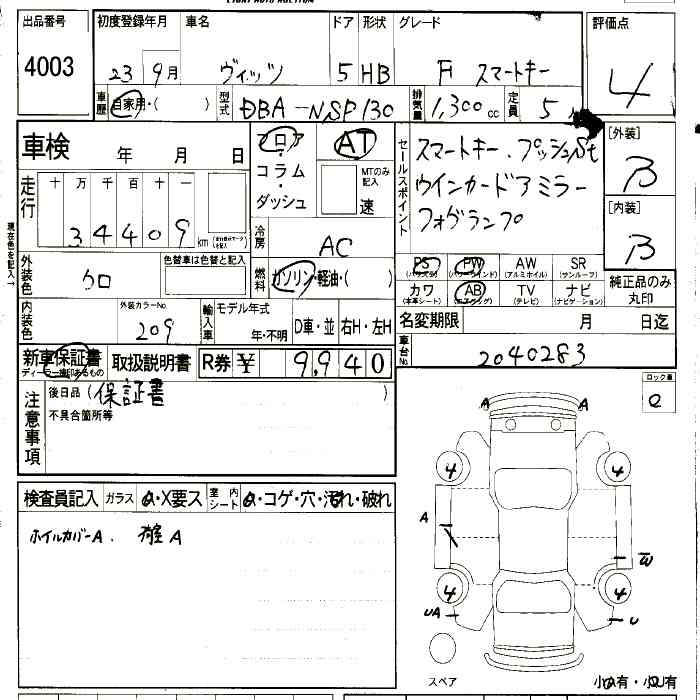 出品番号 初度登録年月 車名 ドア 形状 グレード 評価点
4003 23 9月 ヴィッツ 5 HB F スマートキー 4
車歴 自家用・( ) 型式 DBA-NSP130 排気量 1,300cc 定員 5
車検 年 月 日
フロア・コラム・ダッシュ AT MTのみ記入 速
セールスポイント スマートキー.プッシュSt
ウインカードアミラー
フォグランプ
[外装] B
[内装] B
走行 十 万 千 百 十 一
34409 km
現在色を記入→
冷房 AC
外装色 クロ 色替車は色替と記入
燃料 ガソリン・軽油・( )
PS (パワステ) PW (パワーウインド) AW (アルミホイル) SR (サンルーフ)
カワ (本革シート) AB (エアバッグ) TV (テレビ) ナビ (ナビゲーション)
純正品のみ丸印
内装色 外装カラーNo. 209
輸入車 モデル年式 年・不明 D車・並 右H・左H
名変期限 月 日迄
車台No. 2040283
新車保証書 ディーラー捺印あるもの 取扱説明書 R券 ¥ 9,940
注意事項 後日品 (保証書 )
不具合箇所等
ロック
A A
4 4
A
W
4 4
UA U
スペア
検査員記入 ガラス A・X要ス 室内シート A・コゲ・穴・汚れ・破れ
ホイルカバーA.
小A有・小U有